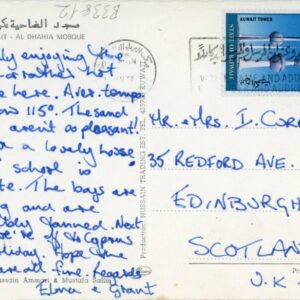 833e12
مسجد الضاحية
AIT - AL DHAHIA MOSQUE
ly enjoying the
rather hot
e here. Aver. temps
ow 115°. The sand
arent so pleasant!
a lovely house
school is
te. The boys are
g and are
bly tanned. Next
ere off to Cyprus
liday. Hope the
are all fine. Regards
Elma & Grant
ussein Ammari & Mustafa
Production: HUSSAIN TRADING EST. TEL. KUWAIT
KUWAIT TOWER
STATE OF KUWAIT
AME AND ADD
Mr. & Mrs. I. CURR
35 REDFORD AVE.
EDINBURGH
SCOTLAN
U.K